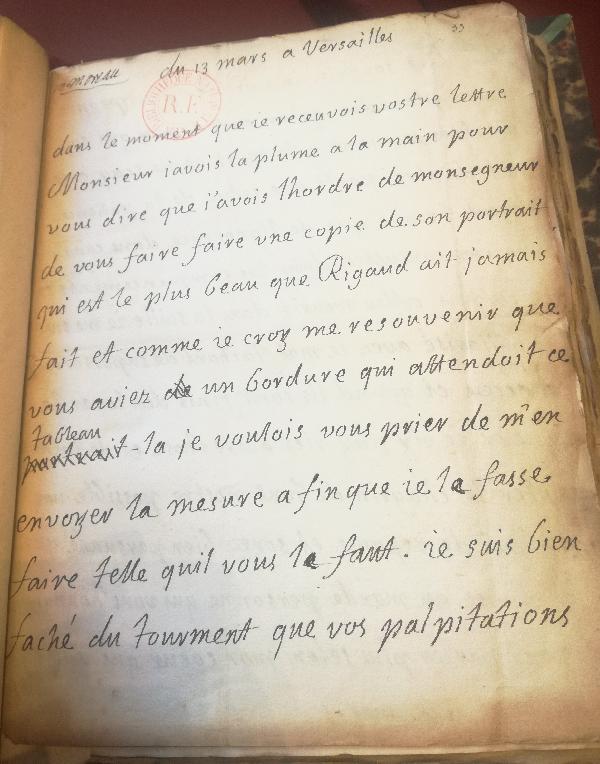 du 13 mars a Versailles
33
R.F.
dans le moment que ie receuvois vostre lettre
Monsieur iavois la plume a la main pour
vous dire que j'avois lhordre de monsegneur
de vous faire faire vne copie de son portrait
qui est le plus beau que Rigaud ait jamais
fait et comme ie croy me resouvenir que
vous aviez de un bordure qui attendoit ce
tableau
portrait-la je voulois vous prier de m'en
envoyer la mesure afin que ie la fasse
faire telle quil vous la faut. ie suis bien
faché du tourment que vos palpitations